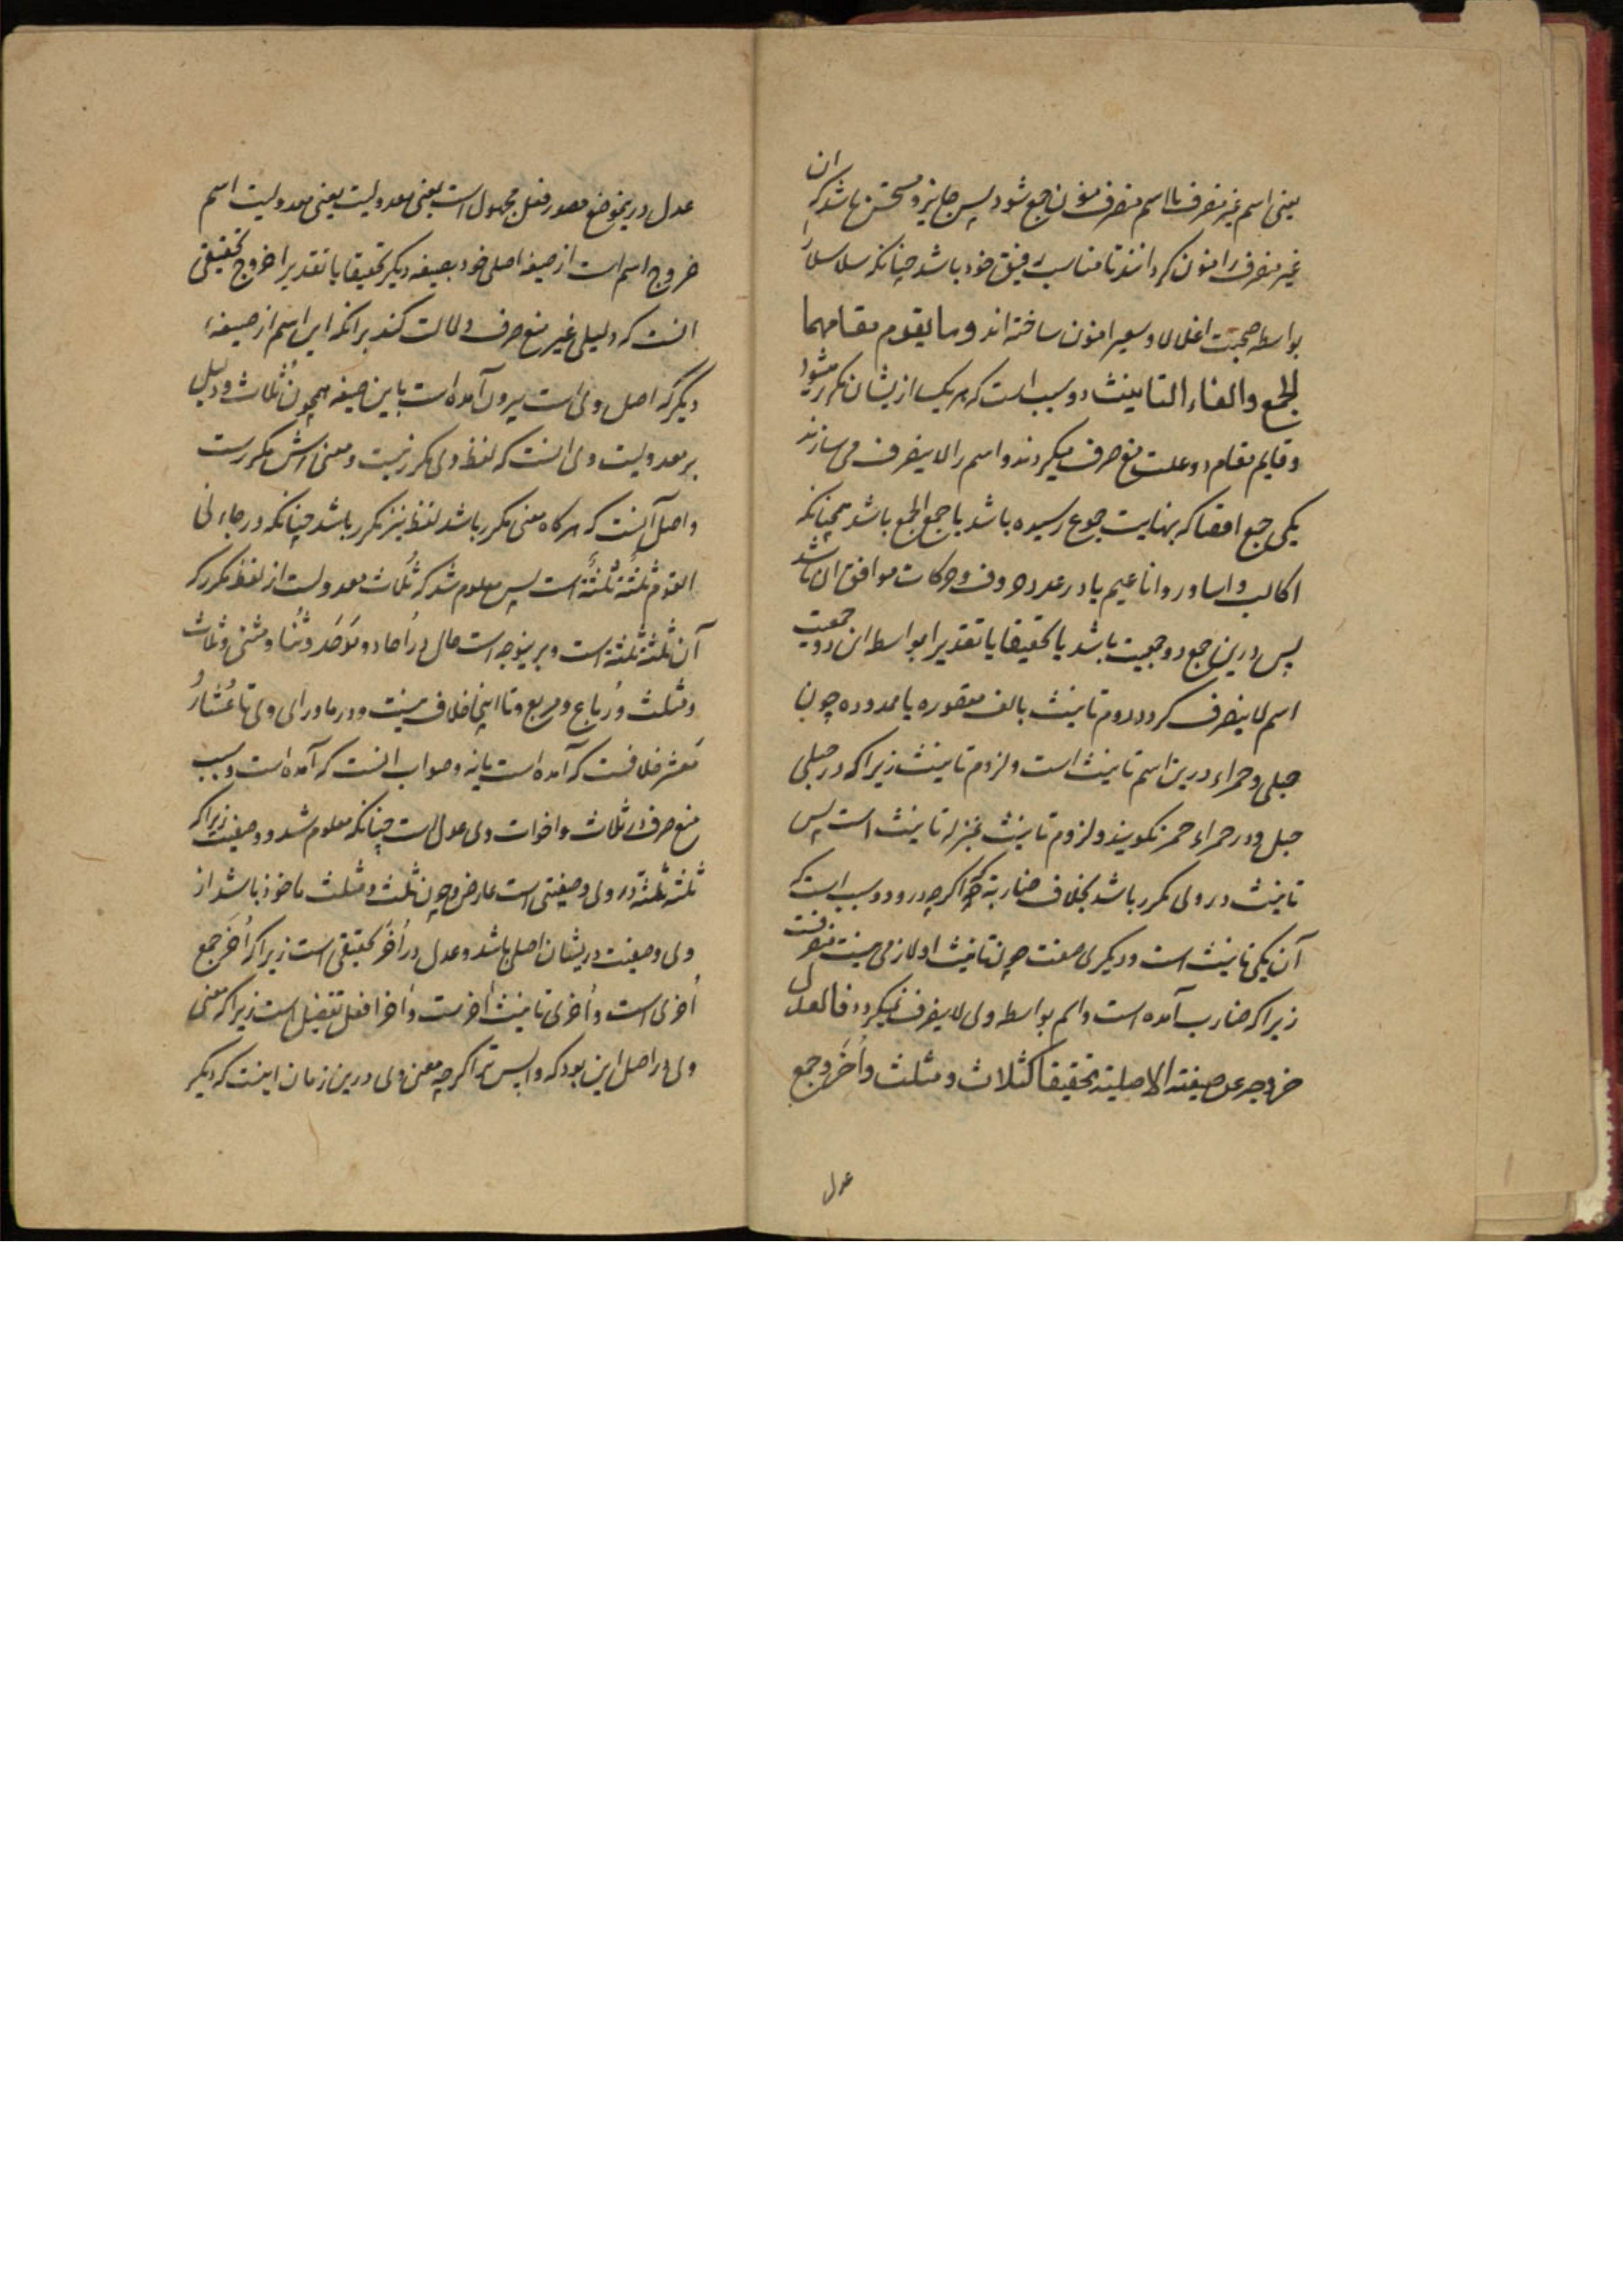 یعنی اسم غیر منصرف با اسم منصرف منون جمع شود پس جایز و مستحسن باشد که ان
غیر منصرف را منون کردانند تا مناسب رفیق خود باشد چنانکه سلاسلا را
بواسطه صحبت اغلالا و سعیرا منون ساخته اند وما یقوم مقامهما
الجمع والفاء التانیث دو سبب است که هر یک ازیشان مکرر میشود
و قایم مقام دو علت منع صرف میکردند و اسم را لا ینصرف می سازند
یکی جمع اقصا که بنهایت جموع رسیده باشد یا جمع الجمع باشد همچنانکه
اکالب و اساور و اناعیم یا در عدد حروف و حرکات موافق ان باشد
پس درین جمع دو جمعیت باشد یا تحقیقا یا تقدیرا بواسطه این دو جمعیت
اسم لا ینصرف کردد دوم تانیث بالف مقصوره یا ممدوده چون
حبلی و حمراء درین اسم تانیث است و لزوم تانیث زیرا که در حبلی
حبل و در حمراء حمر نکویند و لزوم تانیث بمنزله تانیث است پس
تانیث در وی مکرر باشد بخلاف ضاربة که اکرچه درو دو سبب است که
آن یکی تانیث است و دیکری صفت چون تانیث او لازمی نیست منصرفست
زیرا که ضارب آمده است دایم بواسطه وی لا ینصرف نمیکردد فالعدل
خروجه عن صیغته الاصلیة تحقیقا کثلاث ومثلث وأُخَر وجمع
عدل
عدل درینموضع مصدر فعل مجهول است یعنی معدولیت یعنی معدولیت اسم
خروج اسم است از صیغه اصلی خود بصیغه دیکر تحقیقا یا تقدیرا خروج تحقیقی
انست که دلیلی غیر منع صرف دلالت کند برانکه این اسم از صیغهٔ
دیکر که اصل وی است بیرون آمده است باین صیغه همچون ثُلاث و دلیل
بر معدولیت وی انست که لفظ وی مکرر نیست و معنی اش مکررست
و اصل آنست که هرکاه معنی مکرر باشد لفظ نیز مکرر باشد چنانکه در جاءنی
القوم ثلثةٌ ثلثةٌ است پس معلوم شد که ثُلاث معدولست از لفظ مکرر که
آن ثلثة ثلثة است و برینوجه است حال در اُحاد و مَوحَد و ثُنا و مثنی و ثلاث
و مثلث و رُباع و مربع و تا اینجا خلاف نیست و در ماورای وی تا عُشارُ
مَعشر خلافست که آمده است یا نه و صواب انست که آمده است و سبب
منع صرف در ثلاث و اخوات وی عدل است چنانکه معلوم شد و وصفیت زیرا که
ثلثة ثلثة در وی وصفیتی است عارض و چون ثلث و مثلث ماخوذ باشد از
وی وصفیت دریشان اصلی باشد و عدل در اُخَر تحقیقی است زیرا که اُخَر جمع
اُخری است و اُخری تانیث اخرست و اخر افعل تفضیل است زیرا که معنی
وی در اصل این بود که واپس تر اکرچه معنی وی درین زمان اینست که دیکر